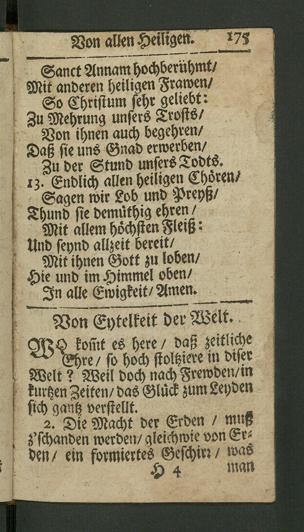 Von allen Heiligen. 175
Sanct Annam hochberühmt/
Mit anderen heiligen Frawen/
So Christum sehr geliebt:
Zu Mehrung unsers Trosts/
Von ihnen auch begehren/
Daß sie uns Gnad erwerben/
Zu der Stund unsers Todts.
13. Endlich allen heiligen Chören/
Sagen wir Lob und Preyß/
Thund sie demüthig ehren/
Mit allem höchsten Fleiß:
Und seynd allzeit bereit/
Mit ihnen Gott zu loben/
Hie und im Himmel oben/
In alle Ewigkeit/ Amen.
Von Eytelkeit der Welt.
WO kom̃t es here/ daß zeitliche
Ehre/ so hoch stoltziere in diser
Welt? Weil doch nach Frewden/ in
kurtzen Zeiten/ das Glück zum Leyden
sich gantz verstellt.
2. Die Macht der Erden/ muß
z'schanden werden/ gleichwie von Er-
den/ ein formiertes Geschir: was
H 4 man